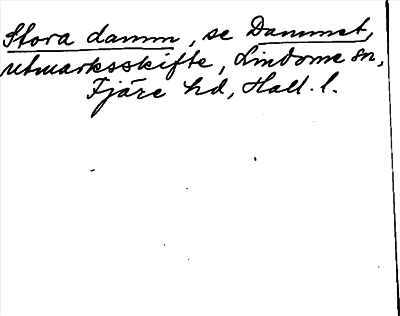 Stora damm, se Dammet,
utmarksskifte, Lindome sn,
Fjäre hd, Hall. l.